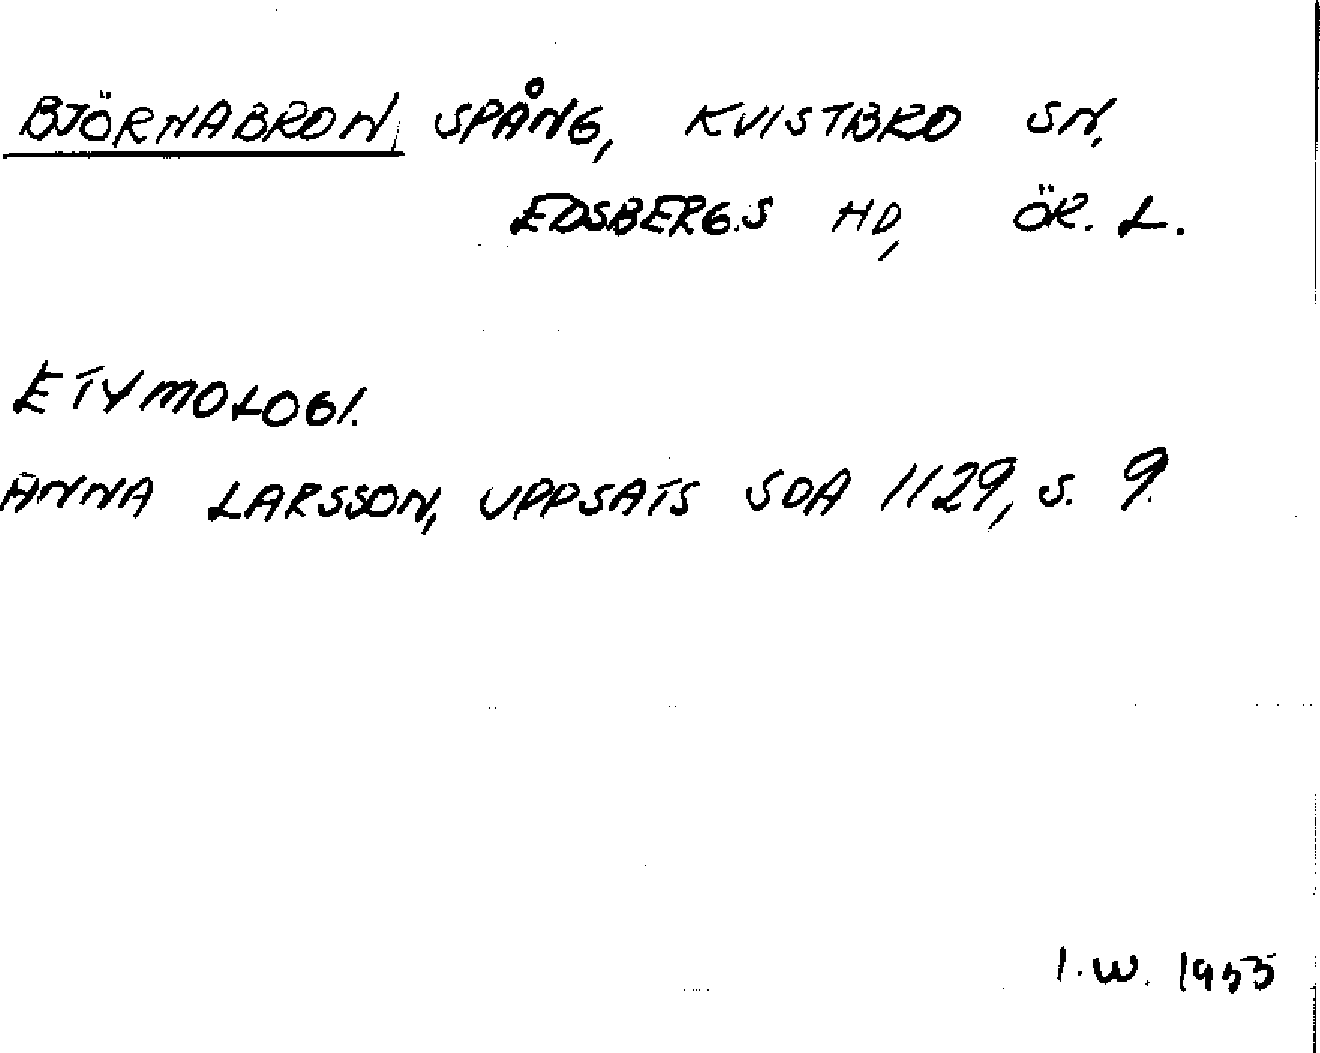 BJÖRNABRON, SPÅNG, KVISTBRO SN,
EDSBERGS HD, ÖR. L.
ETYMOLOGI.
ANNA LARSSON, UPPSATS SOA 1129, S. 9.
I.W. 1953